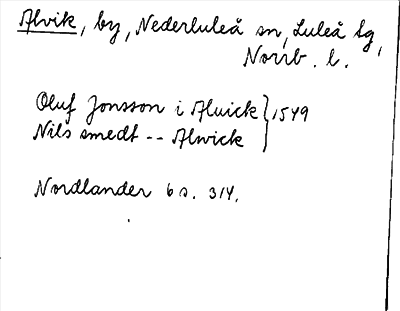 Alvik, by, Nederluleå sn, Luleå lg,
Norrb. l.
Oluf Jonsson i Aluick } 1549
Nils smedt -- Alwick
Nordlander 6 s. 314.